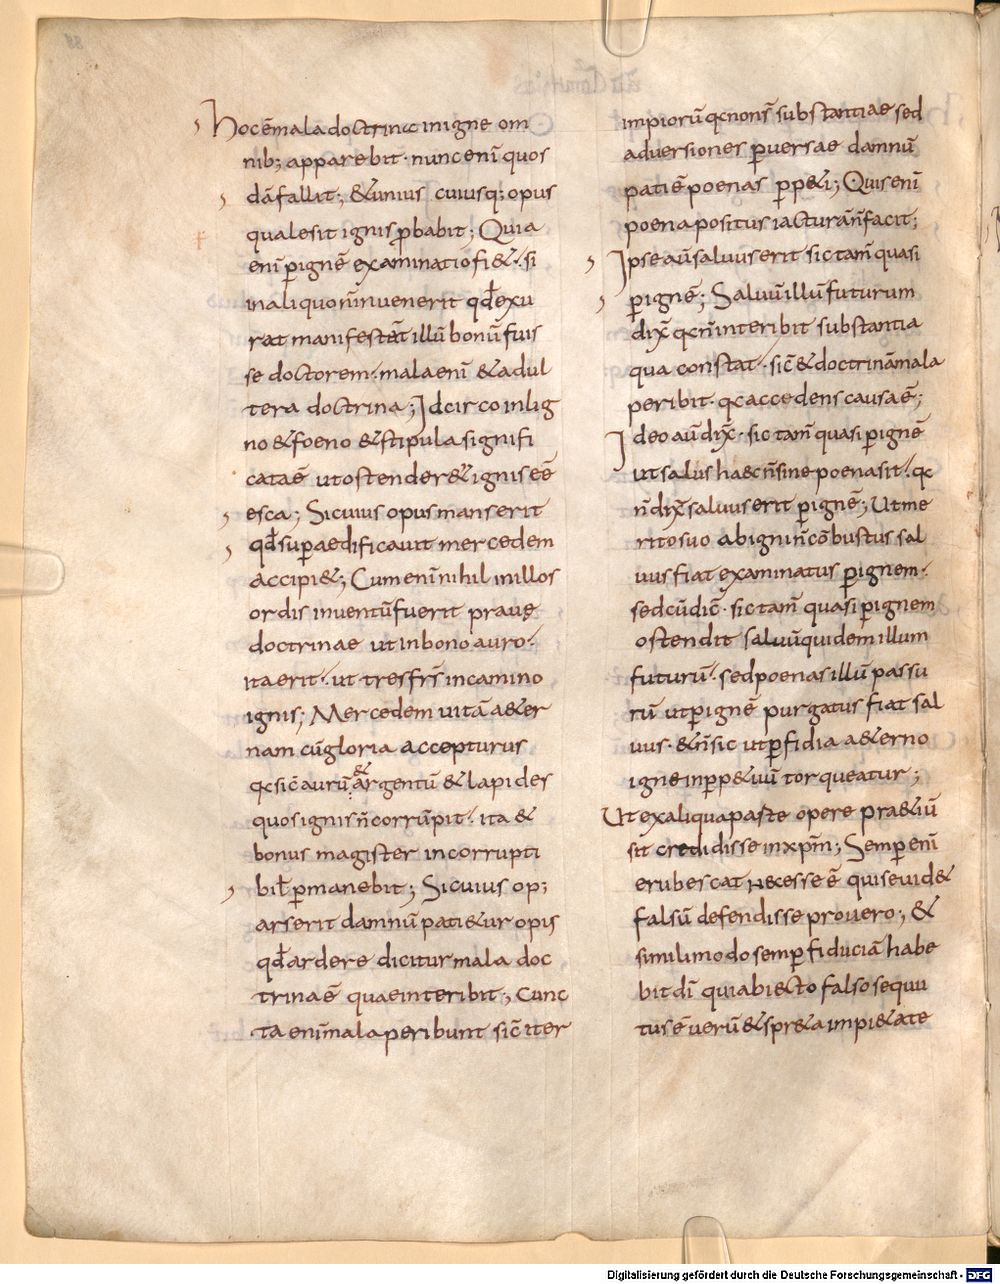 Hoc ē mala doctrina in igne om
nib; apparebit· nunc enī quos
dā fallit; & unius cuiusq; opus
quale sit ignis ꝓbabit; Quia
enī ꝑ ignē examinatio fi&· si
in aliquo nīhil invenerit qđ exu
rat manifestāt illū bonū fuis
se doctorem· mala enī & adul
tera doctrina; Idcirco in lig
no & foeno & stipula signifi
cata ē ut ostender& ignis eē
esca; Si cuius opus manserit
qđ supaedificavit mercedem
accipi&; Cum enī nihil in illos
ordis inventū fuerit pravę
doctrinae ut in bono auro·
ita erit· ut tres frs̄ in camino
ignis; Mercedem vitā a&er
nam cū gloria accepturus
qc sic̄ aurū & argentū & lapides
quos ignis n̄ corrūpit· ita &
bonus magister incorrupti
bił ꝑmanebit; Si cuius op;
arserit damnū pati&ur opis
qđ ardere dicitur mala doc
trina ē quae interibit; Cunc
ta enī mala peribunt sic̄ iter
impiorū qc non s̄ substantiae sed
adversiones ꝑversae damnū
pati ē poenas ꝑp&i; Quis enī
poena positus iacturā n̄ facit;
Ipse aū salvus erit sic tam̄ quasi
ꝑ ignē; Salvū illū futurum
dix̄ qc n̄ interibit substantia
qua constat· sic̄ & doctrinā mala
peribit· qc accedens causa ē;
Ideo aū dix̄· sic tam̄ quasi ꝑ ignē
ut salus haec n̄ sine poena sit· qc
n̄ dix̄ salvus erit ꝑ ignē; Ut me
rito suo ab igni n̄ cōbustus sal
vus fiat examinatus ꝑ ignem·
sed cū dic̄· sic tam̄ quasi ꝑ ignem
ostendit salvū quidem illum
futurū· sed poenas illū passu
rū ut ꝑ ignē purgatus fiat sal
vus· & n̄ sic ut ꝑfidia a&erno
igne in ꝑp&uū torqueatur;
Ut ex aliqua parte opere pr&iū
sit credidisse in xp̄m; Semper enī
erubescat necesse ē qui se vid&
falsū defendisse pro vero; &
simili modo semper fiduciā habe
bit dī quia biecto falso sequu
tus ē verū & spr&a impi&ate
Digitalisierung gefördert durch die Deutsche Forschungsgemeinschaft - DFG